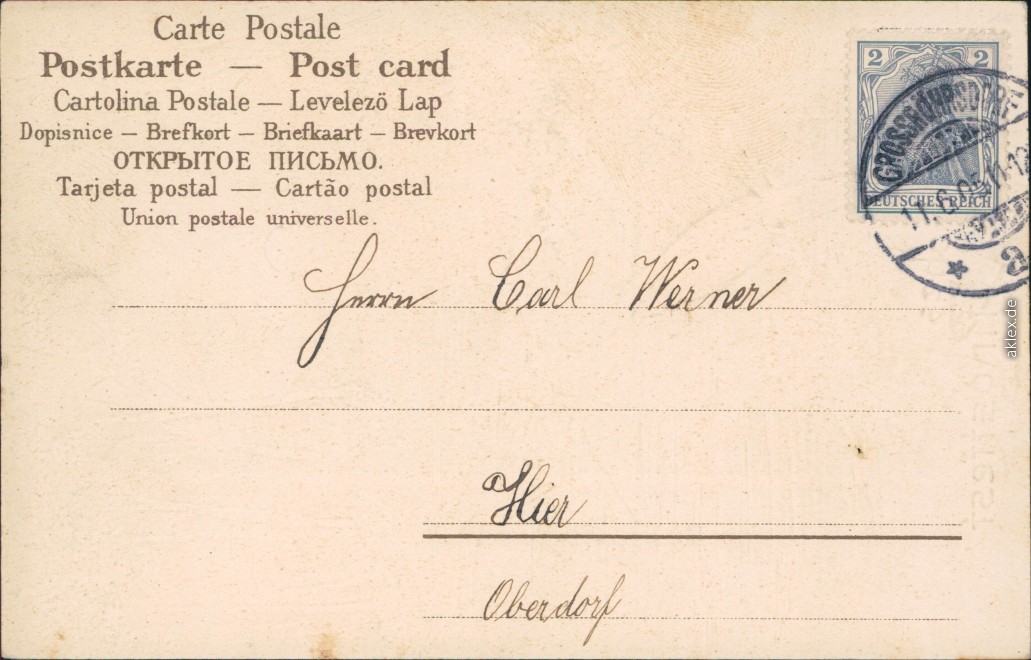 Carte Postale
Postkarte — Post card
Cartolina Postale — Levelező Lap
Dopisnice — Brefkort — Briefkaart — Brevkort
ОТКРЫТОЕ ПИСЬМО.
Tarjeta postal — Cartão postal
Union postale universelle.
2 2
DEUTSCHES REICH
GROSSRÖHRSDORF
11.6.05.11-12
* a
Herrn Carl Werner
Hier
Oberdorf
aklex.de